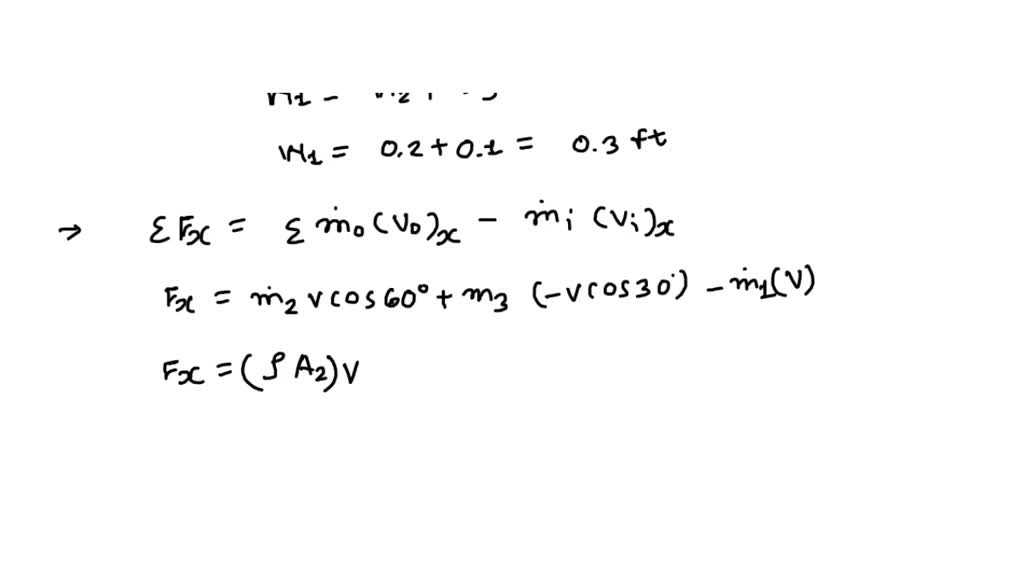 W1 = 0.2 + 0.1 = 0.3 ft
→ Σ Fx = Σ ṁo (Vo)x − ṁi (Vi)x
Fx = ṁ2 V cos 60° + m3 (−V cos 30°) − ṁ1(V)
Fx = (ρ A2) V